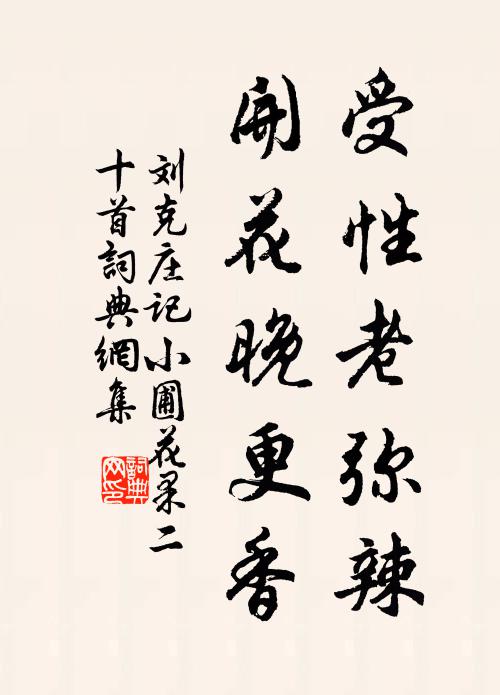 受性老弥辣
開花晚更香
刘克庄记小圃花果二
十首詞典網集
詞典
网印